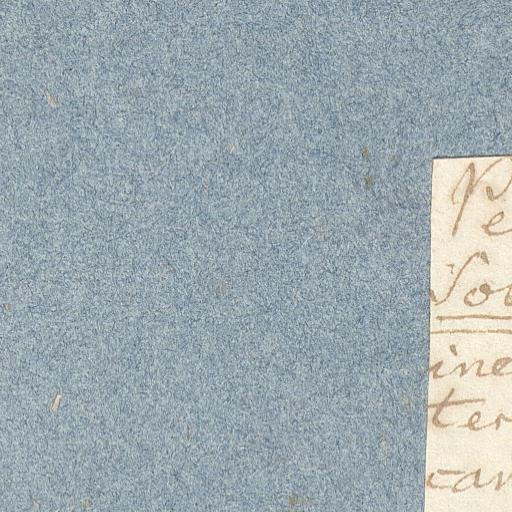 Pe
Sol
ine
ter
car